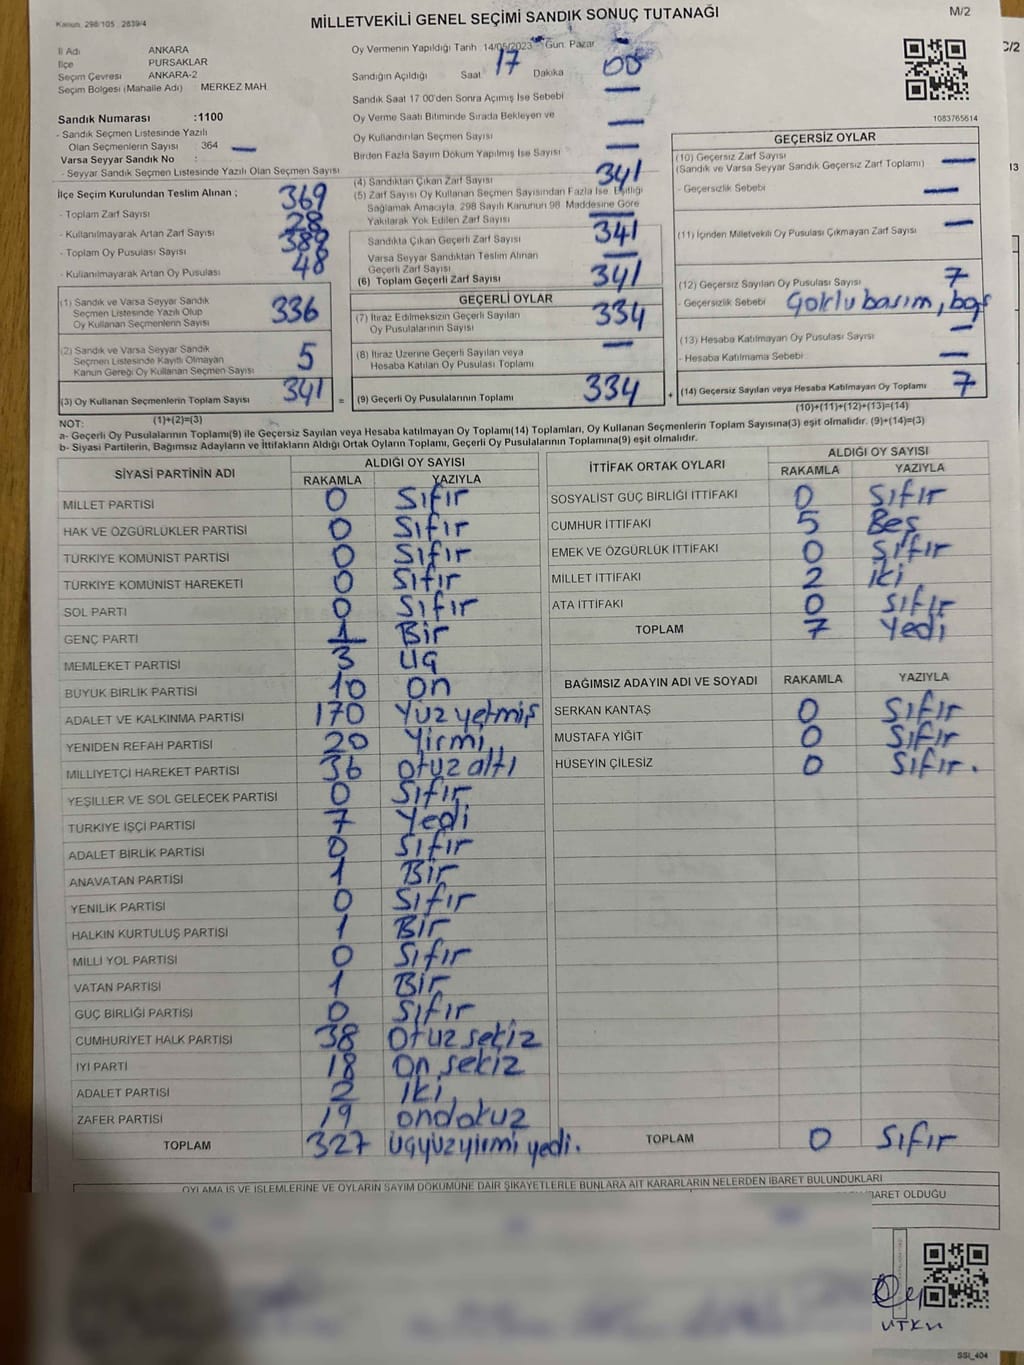 Kanun 298/105 2839/4
MİLLETVEKİLİ GENEL SEÇİMİ SANDIK SONUÇ TUTANAĞI
M/2
İl Adı ANKARA
İlçe PURSAKLAR
Seçim Çevresi ANKARA-2
Seçim Bölgesi (Mahalle Adı) MERKEZ MAH
Sandık Numarası :1100
- Sandık Seçmen Listesinde Yazılı
Olan Seçmenlerin Sayısı 364 —
Varsa Seyyar Sandık No :
- Seyyar Sandık Seçmen Listesinde Yazılı Olan Seçmen Sayısı
Oy Vermenin Yapıldığı Tarih 14/05/2023 Gün: Pazar —
Sandığın Açıldığı Saat 17 Dakika 00
Sandık Saat 17 00'den Sonra Açımış İse Sebebi —
Oy Verme Saati Bitiminde Sırada Bekleyen ve
Oy Kullandırılan Seçmen Sayısı —
Birden Fazla Sayım Döküm Yapılmış İse Sayısı —
1083765614
C/2
13
İlçe Seçim Kurulundan Teslim Alınan ;
- Toplam Zarf Sayısı 369
- Kullanılmayarak Artan Zarf Sayısı 28
- Toplam Oy Pusulası Sayısı 389
- Kullanılmayarak Artan Oy Pusulası 48
(1) Sandık ve Varsa Seyyar Sandık
Seçmen Listesinde Yazılı Olup
Oy Kullanan Seçmenlerin Sayısı 336
(2) Sandık ve Varsa Seyyar Sandık
Seçmen Listesinde Kayıtlı Olmayan
Kanun Gereği Oy Kullanan Seçmen Sayısı 5
(3) Oy Kullanan Seçmenlerin Toplam Sayısı 341 =
(1)+(2)=(3)
(4) Sandıktan Çıkan Zarf Sayısı 341
(5) Zarf Sayısı Oy Kullanan Seçmen Sayısından Fazla İse, Eşitliği
Sağlamak Amacıyla, 298 Sayılı Kanunun 98 Maddesine Göre
Yakılarak Yok Edilen Zarf Sayısı —
Sandıkta Çıkan Geçerli Zarf Sayısı 341
Varsa Seyyar Sandıktan Teslim Alınan
Geçerli Zarf Sayısı —
(6) Toplam Geçerli Zarf Sayısı 341
GEÇERLİ OYLAR
(7) İtiraz Edilmeksizin Geçerli Sayılan
Oy Pusulalarının Sayısı 334
(8) İtiraz Üzerine Geçerli Sayılan veya
Hesaba Katılan Oy Pusulası Toplamı —
(9) Geçerli Oy Pusulalarının Toplamı 334 +
GEÇERSİZ OYLAR
(10) Geçersiz Zarf Sayısı
(Sandık ve Varsa Seyyar Sandık Geçersiz Zarf Toplamı) —
- Geçersizlik Sebebi —
(11) İçinden Milletvekili Oy Pusulası Çıkmayan Zarf Sayısı —
(12) Geçersiz Sayılan Oy Pusulası Sayısı 7
- Geçersizlik Sebebi Çoklu basım, boş
(13) Hesaba Katılmayan Oy Pusulası Sayısı —
- Hesaba Katılmama Sebebi —
(14) Geçersiz Sayılan veya Hesaba Katılmayan Oy Toplamı 7
(10)+(11)+(12)+(13)=(14)
NOT:
a- Geçerli Oy Pusulalarının Toplamı(9) ile Geçersiz Sayılan veya Hesaba katılmayan Oy Toplamı(14) Toplamları, Oy Kullanan Seçmenlerin Toplam Sayısına(3) eşit olmalıdır. (9)+(14)=(3)
b- Siyasi Partilerin, Bağımsız Adayların ve İttifakların Aldığı Ortak Oyların Toplamı, Geçerli Oy Pusulalarının Toplamına(9) eşit olmalıdır.
SİYASİ PARTİNİN ADI ALDIĞI OY SAYISI
RAKAMLA YAZIYLA
MİLLET PARTİSİ 0 Sıfır
HAK VE ÖZGÜRLÜKLER PARTİSİ 0 Sıfır
TÜRKİYE KOMÜNİST PARTİSİ 0 Sıfır
TÜRKİYE KOMÜNİST HAREKETİ 0 Sıfır
SOL PARTİ 0 Sıfır
GENÇ PARTİ 1 Bir
MEMLEKET PARTİSİ 3 Üç
BÜYÜK BİRLİK PARTİSİ 10 On
ADALET VE KALKINMA PARTİSİ 170 Yüz yetmiş
YENİDEN REFAH PARTİSİ 20 Yirmi
MİLLİYETÇİ HAREKET PARTİSİ 36 Otuz altı
YEŞİLLER VE SOL GELECEK PARTİSİ 0 Sıfır
TÜRKİYE İŞÇİ PARTİSİ 7 Yedi
ADALET BİRLİK PARTİSİ 0 Sıfır
ANAVATAN PARTİSİ 1 Bir
YENİLİK PARTİSİ 0 Sıfır
HALKIN KURTULUŞ PARTİSİ 1 Bir
MİLLİ YOL PARTİSİ 0 Sıfır
VATAN PARTİSİ 1 Bir
GÜÇ BİRLİĞİ PARTİSİ 0 Sıfır
CUMHURİYET HALK PARTİSİ 38 Otuz sekiz
İYİ PARTİ 18 On sekiz
ADALET PARTİSİ 2 İki
ZAFER PARTİSİ 19 ondokuz
TOPLAM 327 üçyüzyirmi yedi.
İTTİFAK ORTAK OYLARI ALDIĞI OY SAYISI
RAKAMLA YAZIYLA
SOSYALİST GÜÇ BİRLİĞİ İTTİFAKI 0 Sıfır
CUMHUR İTTİFAKI 5 Beş
EMEK VE ÖZGÜRLÜK İTTİFAKI 0 Sıfır
MİLLET İTTİFAKI 2 iki
ATA İTTİFAKI 0 Sıfır
TOPLAM 7 Yedi
BAĞIMSIZ ADAYIN ADI VE SOYADI RAKAMLA YAZIYLA
SERKAN KANTAŞ 0 Sıfır
MUSTAFA YİĞİT 0 Sıfır
HÜSEYİN ÇİLESİZ 0 Sıfır.
TOPLAM 0 Sıfır
OYLAMA İŞ VE İŞLEMLERİNE VE OYLARIN SAYIM DÖKÜMÜNE DAİR ŞİKAYETLERLE BUNLARA AİT KARARLARIN NELERDEN İBARET BULUNDUKLARI
İBARET OLDUĞU
UTKU
SSI_404